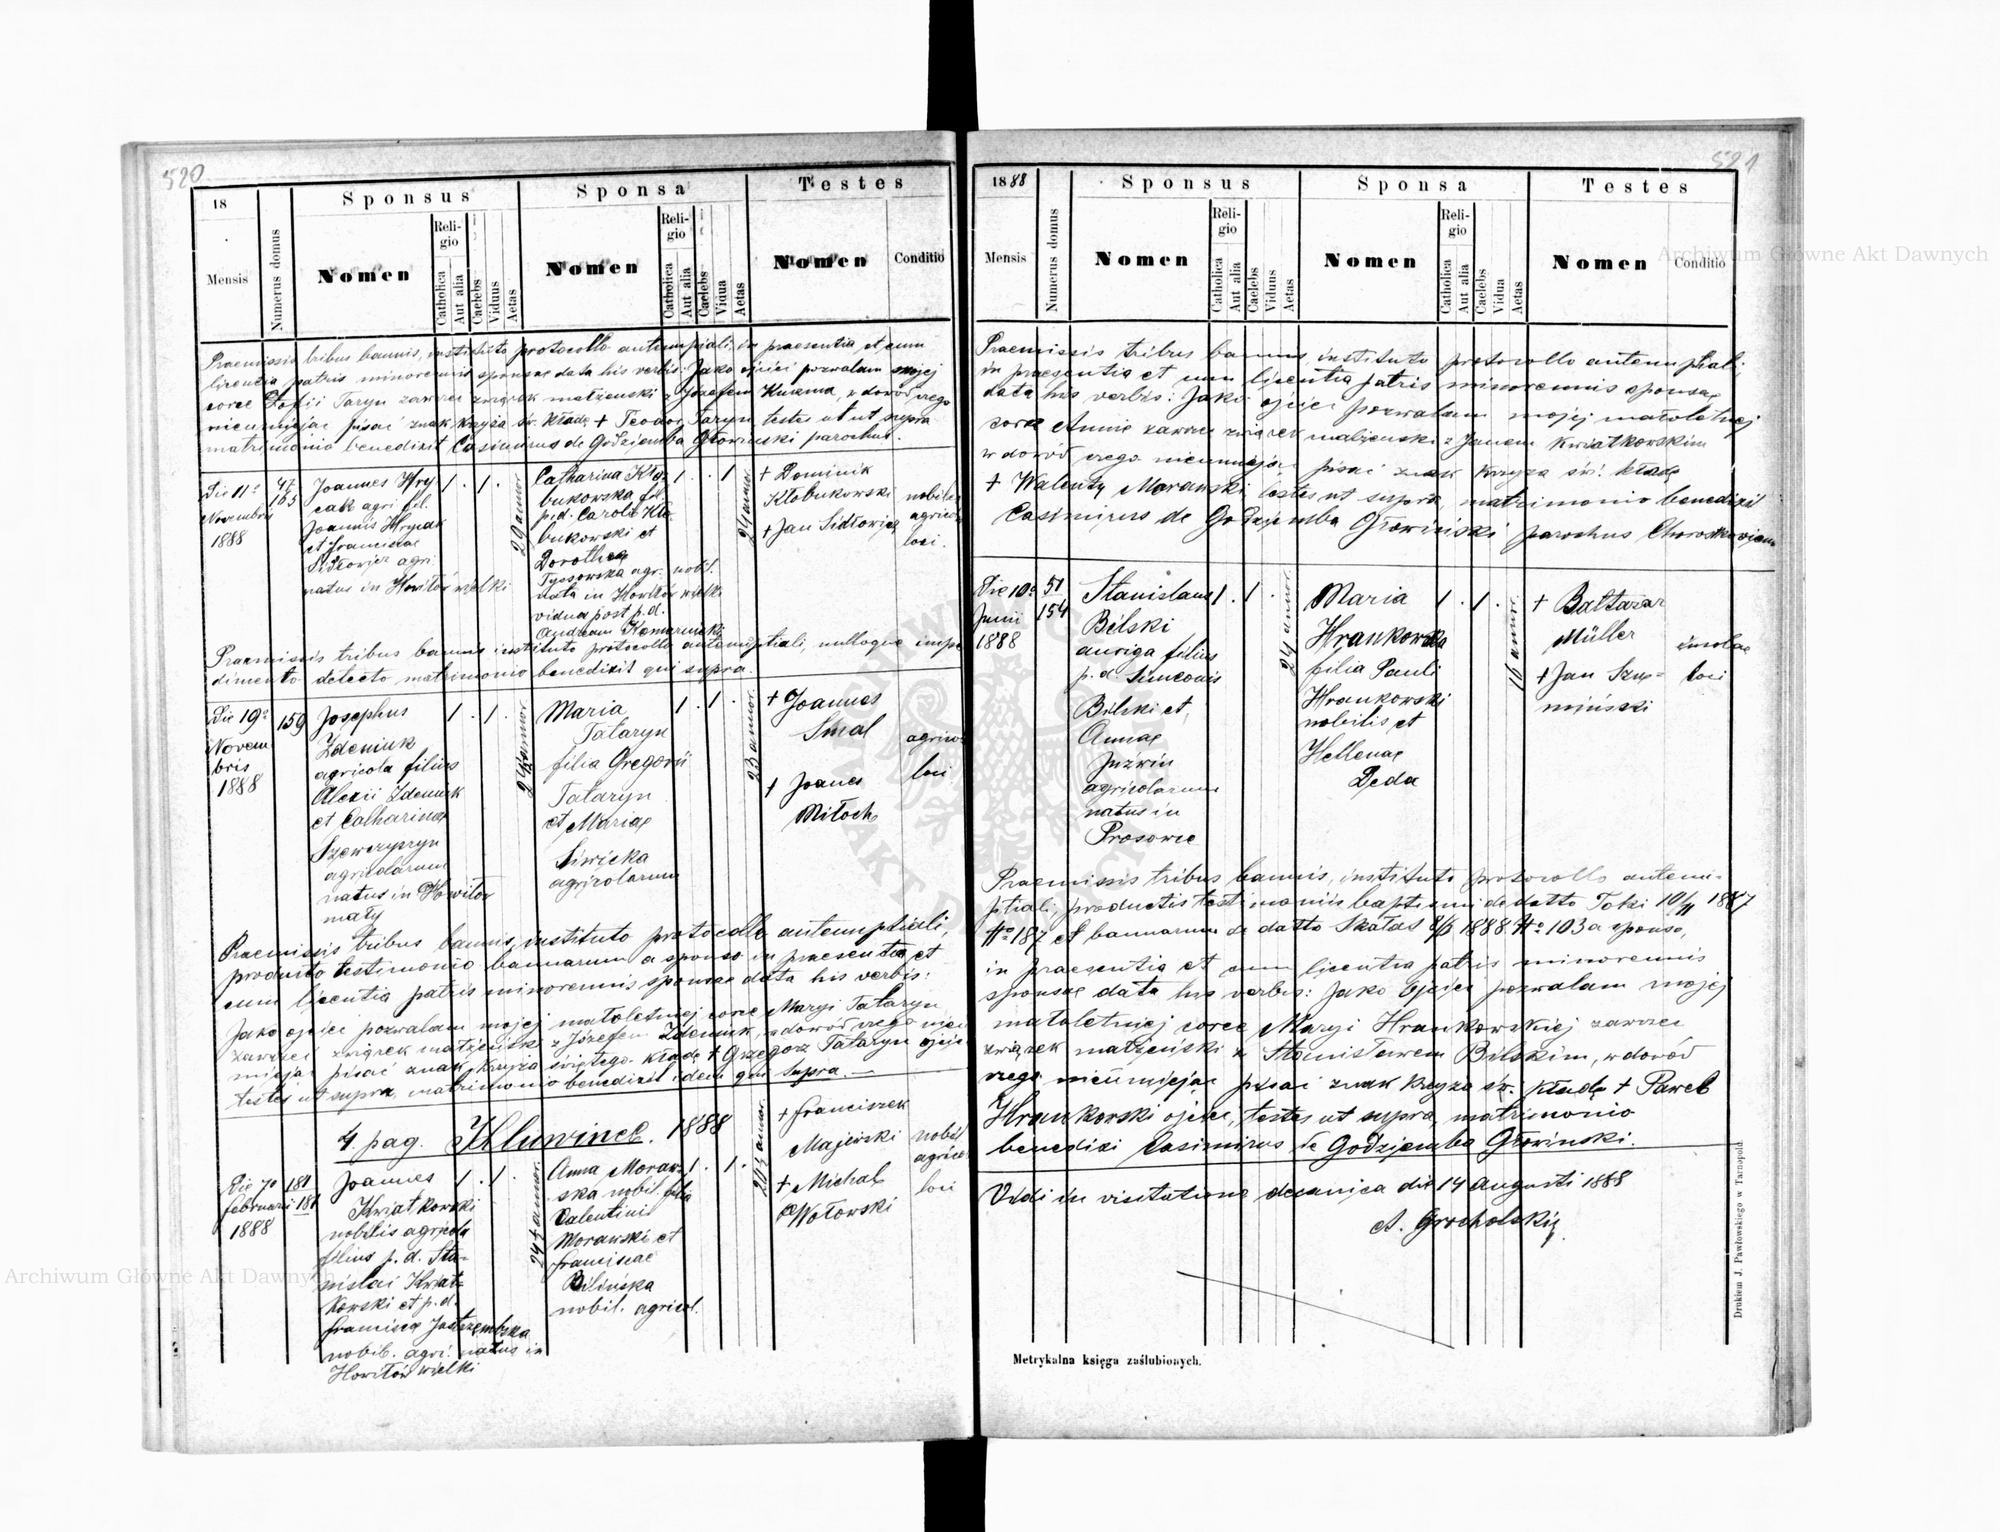 520
18
Sponsus
Sponsa
Testes
Mensis
Numerus domus
Nomen
Religio
Catholica
Aut alia
Caelebs
Viduus
Aetas
Nomen
Religio
Catholica
Aut alia
Caelebs
Vidua
Aetas
Nomen
Conditio
Praemissis tribus bannis, instituto protocollo antenuptiali, in praesentia et cum
licentia patris minorennis sponsae data his verbis: Jako ojciec pozwalam mojej
corce Zofii Taryn zawrzec związek małżenski z Józefem Kusema, w dowód czego
nieumiejąc pisać znak krzyża św. kładę + Teodor Taryn testes ut supra
matrimonio benedixit Casimirus de Godziemba Głowinski parochus.
Die 11º
Novembris
1888
47
165
Joannes Hry
cak agri. fil.
Joannis Hrycak
et Franciscae
Sidłowicz agri.
natus in Howiłów wielki
1 . 1 .
29 annor.
Catharina Kło
bukowska fil.
p.d. Caroli Kło
bukowski et
Dorothea
Tyssowska agr. nobil.
nata in Howiłów wielki
vidua post p.d.
Andream Komarnicki
1 . . 1
24 annor.
+ Dominik
Kłobukowski
+ Jan Sidłowicz
nobiles
agricol
loci.
Praemissis tribus bannis instituto protocollo antenuptiali, nulloque impe
dimento detecto matrimonio benedixit qui supra.
Die 19º
Novem
bris
1888
159
Josephus
Zdeniuk
agricola filius
Alexii Zdeniuk
et Catharina
Szewczyszyn
agricolarum
natus in Howiłów
mały
1 . 1 .
Maria
Tataryn
filia Gregorii
Tataryn
et Mariae
Siwicka
agricolarum
1 . 1 .
23 annor.
+ Joannes
Smal
+ Joanes
Miłoch
agricol
loci
Praemissis tribus bannis, instituto protocollo antenuptiali,
producto testimonio bannarum a sponso in praesentia et
cum licentia patris minorennis sponsae data his verbis:
Jako ojciec pozwalam mojej małoletniej corce Maryi Tataryn
zawrzeć związek małżeński z Józefem Zdeniuk, w dowód czego nieu
miejąc pisać znak krzyża świętego kładę + Grzegorz Tataryn ojciec
testes ut supra, matrimonio benedixit idem qui supra. —
4. pag. Kluwince. 1888
Die 7º
Februarii
1888
181
181
Joannes
Kwiatkowski
nobilis agricola
filius p.d. Sta-
nislai Kwiat-
kowski et p.d.
Francisca Jastrzembska
nobil. agri. natus in
Howiłów wielki
1 . 1 .
24 annor.
Anna Moraw-
ska nobil. filia
Valentini
Morawski et
Franciscae
Bilińska
nobil. agricol.
1 . 1 .
+ Franciszek
Majewski
+ Michał
Wołowski
nobil
agricol
loci
521
1888
Sponsus
Sponsa
Testes
Mensis
Numerus domus
Nomen
Religio
Catholica
Aut alia
Caelebs
Viduus
Aetas
Nomen
Religio
Catholica
Aut alia
Caelebs
Vidua
Aetas
Nomen
Conditio
Praemissis tribus bannis, instituto protocollo antenuptiali,
in praesentia et cum licentia patris minorennis sponsae
data his verbis: Jako ojciec pozwalam mojej małoletniej
corce Annie zawrzec związek małżenski z Janem Kwiatkowskim
w dowód czego nieumiejąc pisać znak krzyża św. kładę
+ Walenty Morawski, testes ut supra, matrimonio benedixit
Casimirus de Godziemba Głowiński parochus Chorostkoviensis
Die 10º
Junii
1888
51
154
Stanislaus
Bilski
auriga filius
p.d. Simeonis
Bilski et
Annae
Juzwin
agricolarum
natus in
Prosowce
1 . 1 .
24 annor.
Maria
Hrankowska
filia Pauli
Hrankowski
nobilis et
Hellenae
Deda
1 . 1 .
+ Baltazar
Müller
+ Jan Szu-
miński
incolae
loci
Praemissis tribus bannis, instituto protocollo antenu-
ptiali, productis testimoniis baptismi de datto Toki 10/11 1887
Nº 187 et bannarum de datto Skałat 8/6 1888 Nº 103 a sponso,
in praesentia et cum licentia patris minorennis
sponsae data his verbis: Jako Ojciec pozwalam mojej
małoletniej corce Maryi Hrankowskiej zawrzec
związek małżeński z Stanisławem Bilskim, w dowód
czego nieumiejąc pisać znak krzyża św. kładę + Paweł
Hrankowski ojciec, testes ut supra, matrimonio
benedixi Casimirus de Godziemba Głowinski.
Vidi in visitatione decanica die 14 Augusti 1888
A. Grocholski
Metrykalna księga zaślubionych.
Drukiem J. Pawłowskiego w Tarnopolu
Archiwum Główne Akt Dawnych
Archiwum Główne Akt Dawnych